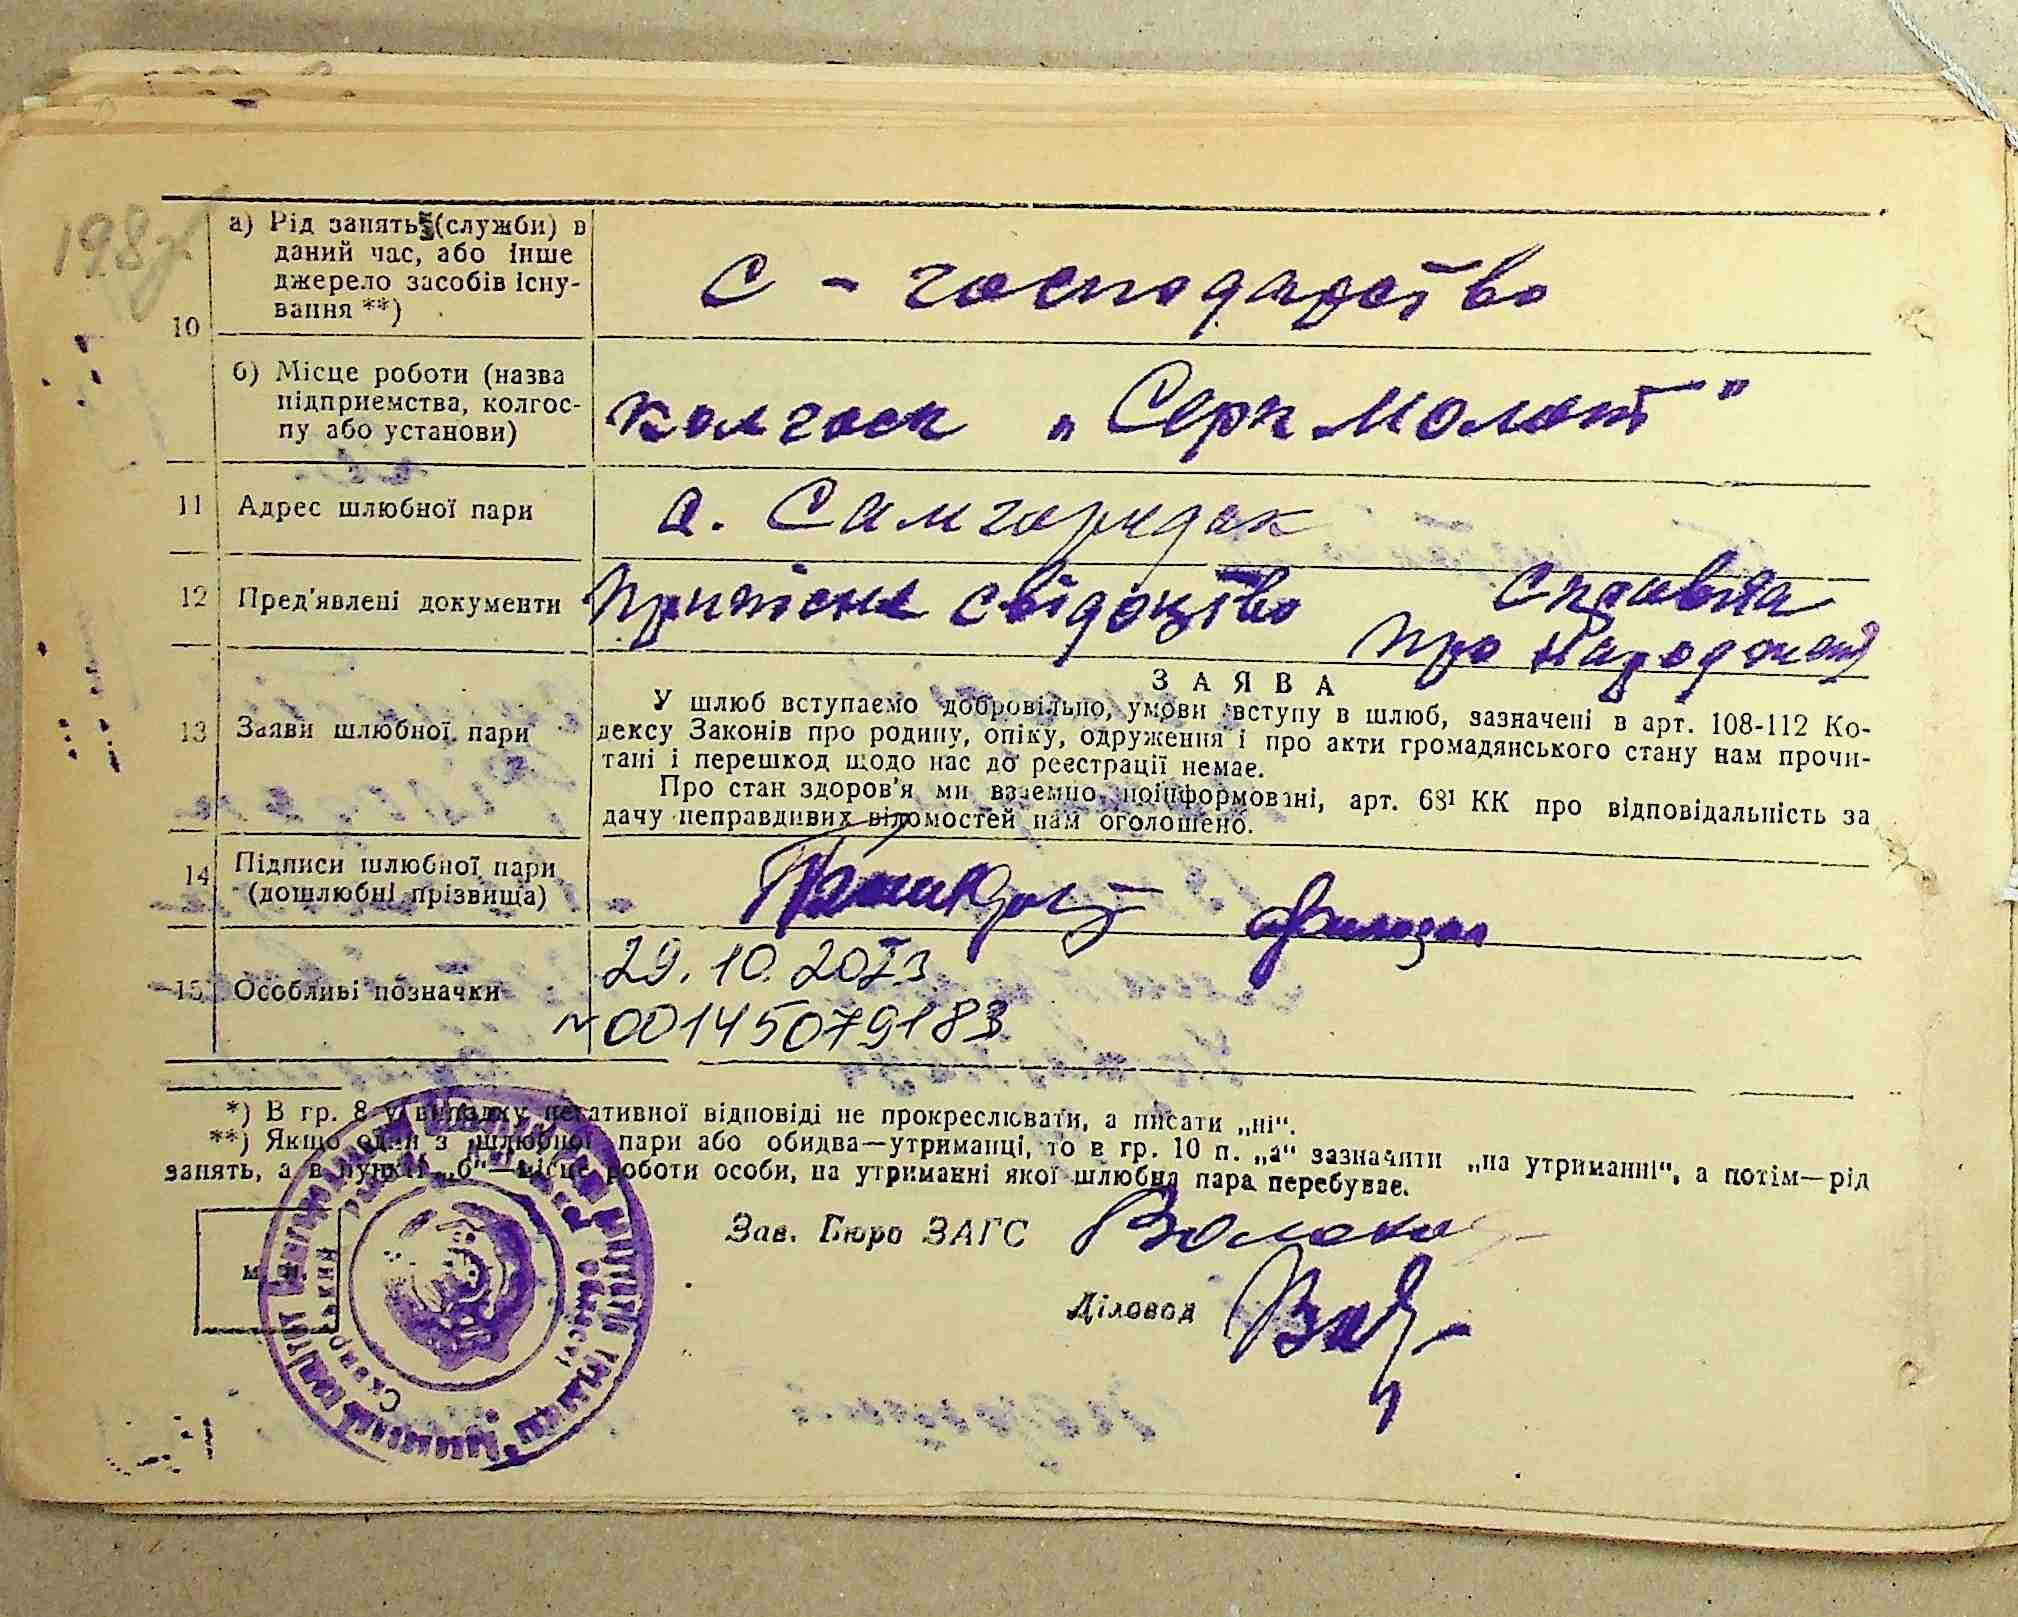 198
10
а) Рід занять (служби) в
даний час, або інше
джерело засобів існу-
вання **)
с - господарство
б) Місце роботи (назва
підприємства, колгос-
пу або установи)
колгосп „Серп молот"
11 Адрес шлюбної пари
с. Самгородок
12 Пред'явлені документи
Приписне свідоцтво Справка
про народжен
13 Заяви шлюбної пари
ЗАЯВА
У шлюб вступаємо добровільно, умови вступу в шлюб, зазначені в арт. 108-112 Ко-
дексу Законів про родину, опіку, одруження і про акти громадянського стану нам прочи-
тані і перешкод щодо нас до реєстрації немає.
Про стан здоров'я ми взаємно поінформовані, арт. 68¹ КК про відповідальність за
дачу неправдивих відомостей нам оголошено.
14 Підписи шлюбної пари
(дошлюбні прізвища)
15 Особливі позначки
29.10.2023
№00145079183
*) В гр. 8 у випадку негативної відповіді не прокреслювати, а писати „ні“.
**) Якщо один з шлюбної пари або обидва—утриманці, то в гр. 10 п. „а“ зазначити „на утриманні“, а потім—рід
занять, а в пункті „б“—місце роботи особи, на утриманні якої шлюбна пара перебуває.
Зав. Бюро ЗАГС
Діловод
М. П.